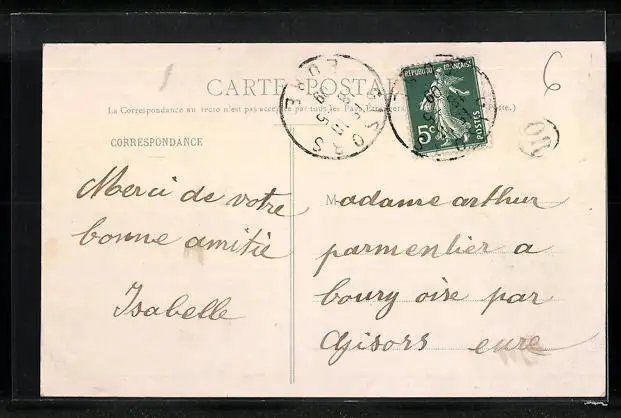 CARTE POSTALE
La Correspondance au recto n'est pas acceptée par tous les Pays Étrangers.
CORRESPONDANCE
RÉPUBLIQUE FRANÇAISE
5c
POSTES
GISORS
6
Merci de votre
bonne amitié
Isabelle
Madame arthur
parmentier a
boury oise par
Gisors eure